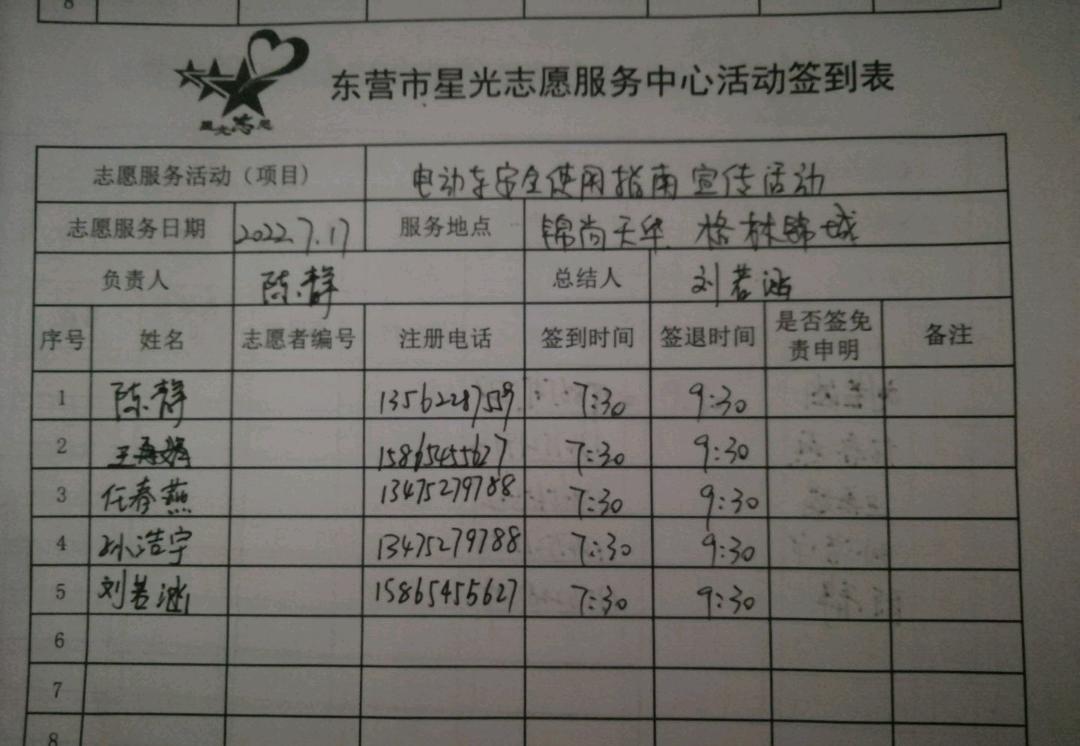 8
星光志愿
东营市星光志愿服务中心活动签到表
志愿服务活动（项目） 电动车安全使用指南宣传活动
志愿服务日期 2022.7.17 服务地点 锦尚天华 格林锦城
负责人 陈静 总结人 刘若涵
序号 姓名 志愿者编号 注册电话 签到时间 签退时间 是否签免责申明 备注
1 陈静 13562287559 7:30 9:30
2 王 15865455627 7:30 9:30
3 任春燕 13475279788 7:30 9:30
4 孙浩宇 13475279788 7:30 9:30
5 刘若涵 15865455627 7:30 9:30
6
7
8